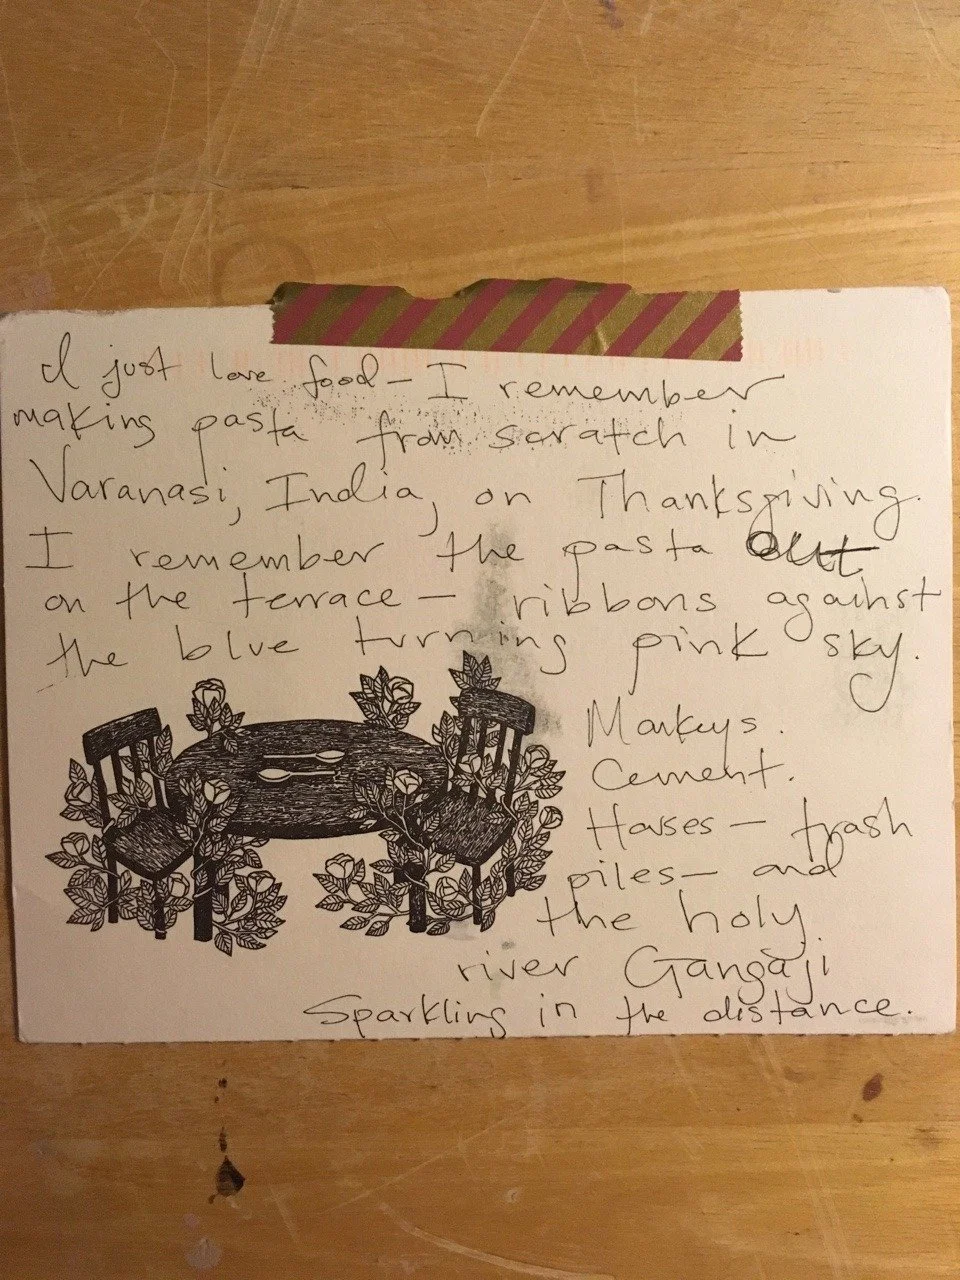 I just love food – I remember
making pasta from scratch in
Varanasi, India, on Thanksgiving.
I remember the pasta out
on the terrace – ribbons against
the blue turning pink sky.
Monkeys.
Cement.
Horses – trash
piles – and
the holy
river Gangaji
Sparkling in the distance.